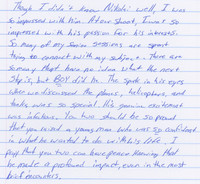 Though I didn't know Nikolai well, I was
so impressed with him. At one shoot, I was so
impressed with his passion for his interests.
So many of my senior sessions are spent
trying to connect with my subject. There are
so many that have no idea what the next
step is, but BOY did he. The spark in his eyes
when we discussed the planes, helicopters, and
tanks was so special. His genuine excitement
was infectious. You two should be so proud
that you raised a young man who was so confident
in what he wanted to do with his life. I
pray that you two can have peace knowing that
he made a profound impact, even in the most
brief encounters.